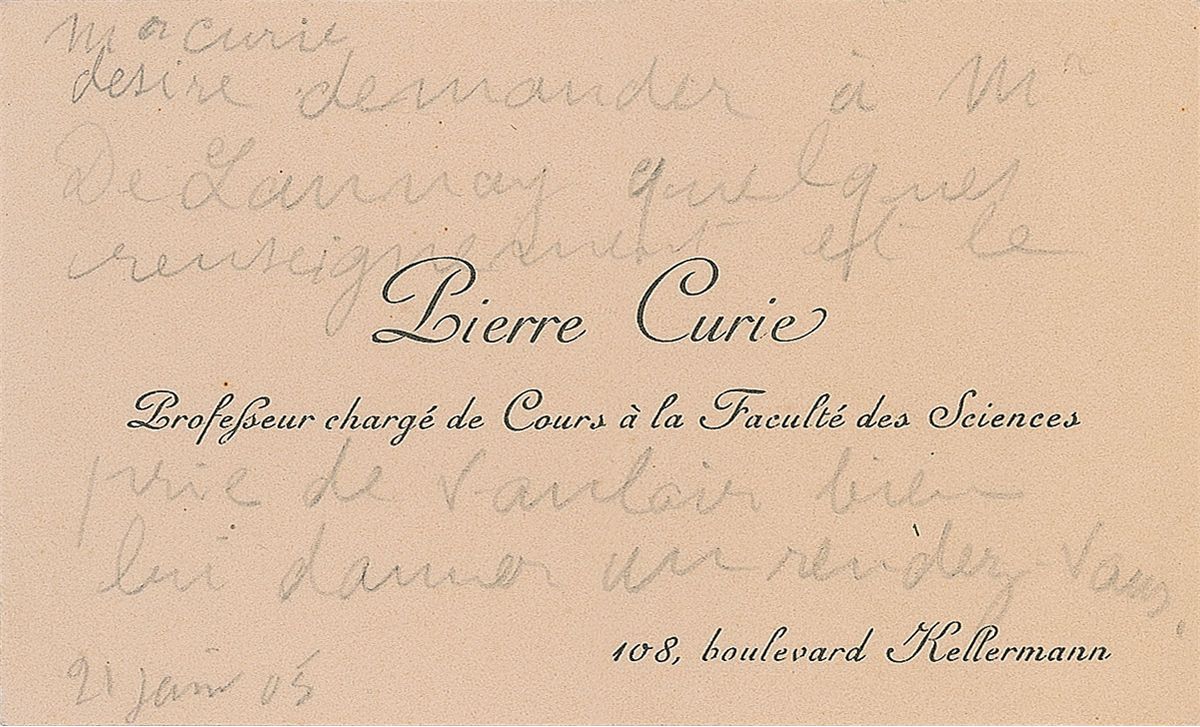 Mr Curie
desire demander à Mr
De Launay quelques
renseignement et le
Pierre Curie
Professeur chargé de Cours à la Faculté des Sciences
prie de vouloir bien
lui donner un rendez-vous.
108, boulevard Kellermann
21 05